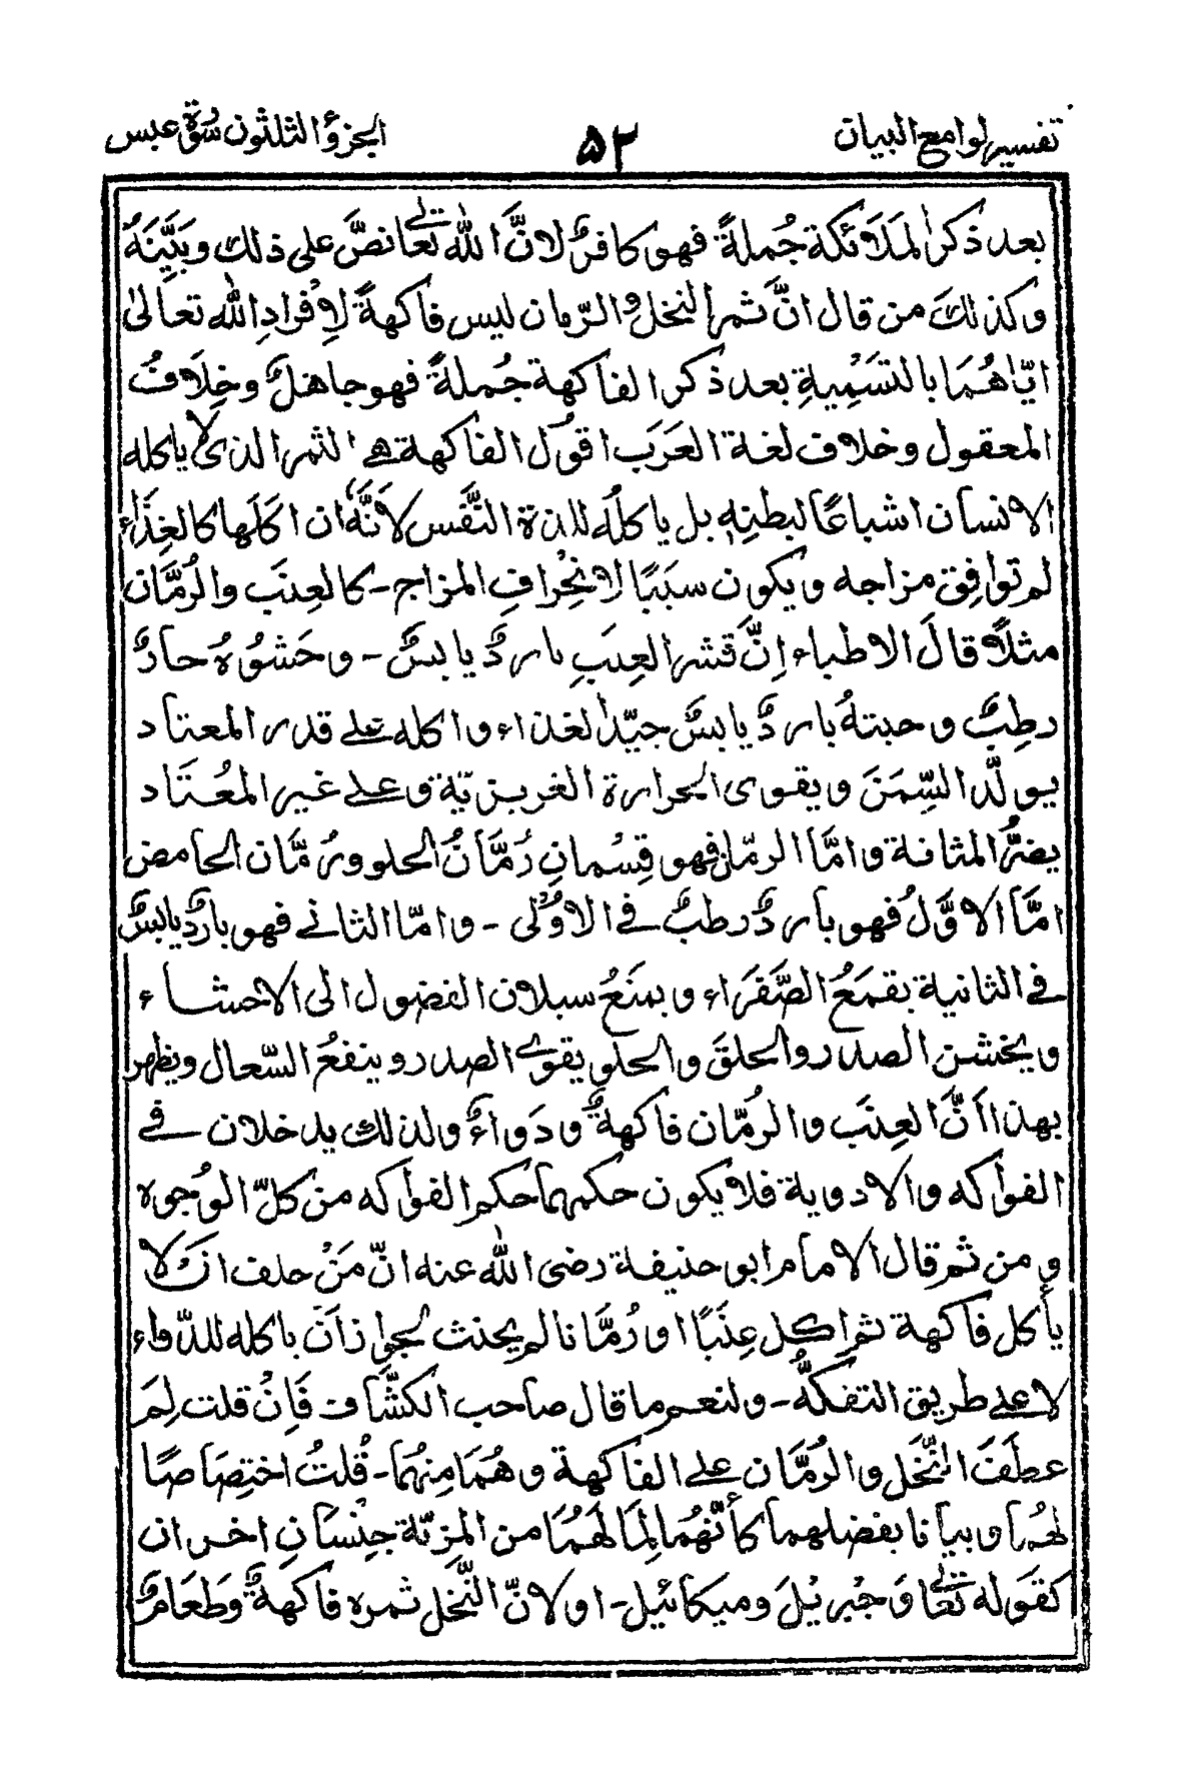 تفسير لوامع البيان ۵۲ الجزؤ الثلثون سورة عبس
بعد ذكر المَلَائكة جُملةً فهو كافرٌ لانَّ الله تعالى نصَّ على ذلك وبَيَّنَهُ
وكذلكَ من قال انَّ ثمر النخل والرّمان ليس فاكهةً لِافرادِ الله تعالىٰ
ايّاهُمَا بالتسَمِيةِ بعد ذكر الفاكهة جُملةً فهو جاهلٌ وخِلَافُ
المعقول وخلاف لغة العَرَب اقول الفاكهة هي الثمر الذى لا ياكله
الانسان اشباعًا لبطنِهٖ بل ياكلُه للذة النَّفس لأنَّهٗ ان اكَلَها كالغِذَاء
لم توافِق مزاجه ويكون سبَبًا لانحِرافِ المزاج - كالعِنَب والرُمَّان
مثلاً قالَ الاطباء اِنَّ قشر العِنَبِ باردٌ يابسٌ - وحَشوُهُ حارٌ
رطِبٌ وحبتهُ باردٌ يابسٌ جيّد الغذاء واكله على قدر المعتاد
يولّد السِّمَنَ ويقوى الحرارة الغريزيّة وعلى غير المُعتَاد
يضرُّ المثانة وامَّا الرمّان فهو قِسْمانِ رُمَّانُ الحلو ورُمَّان الحامض
امَّا الاوَّلُ فهو باردٌ رطبٌ فى الاوُلٰى - وامّا الثانى فهو باردٌ يابسٌ
فى الثانية يقمَعُ الصَّفَرَاء ويمنَعُ سيلان الفضول الى الاحشاء
ويخشن الصدر والحلقَ والحلو يقوى الصدر وينفعُ السّعال ويظهر
بهذا اَنَّ العِنَب والرُمّان فاكهةٌ ودَواءٌ ولذلك يدخلان فى
الفواكه والادوية فلا يكون حكمهما حكم الفواكه من كلّ الوُجوه
ومن ثم قال الامام ابو حنيفة رضى الله عنه انّ مَنْ حلف ان لا
يأكل فاكهة ثم اكل عِنَبًا او رُمَّانا لم يحنث لجواز اَن ياكله للدّواء
لا على طريق التفكُّه - ولنعم ما قال صاحب الكشَّاف فَاِنْ قلت لِمَ
عطَفَ النّخل والرُمَّان على الفاكهة وهُمَا مِنهُما - قُلتُ اختِصَاصًا
لهُما وبيانا بفضلهما كأنّهُما لِمَا لَهُمَا من المزيّة جِنْسَانِ اخران
كقوله تعالى وَجْبرئيلَ وميكائيل - او لانّ النَّخل ثمره فاكهةٌ وطَعَامٌ